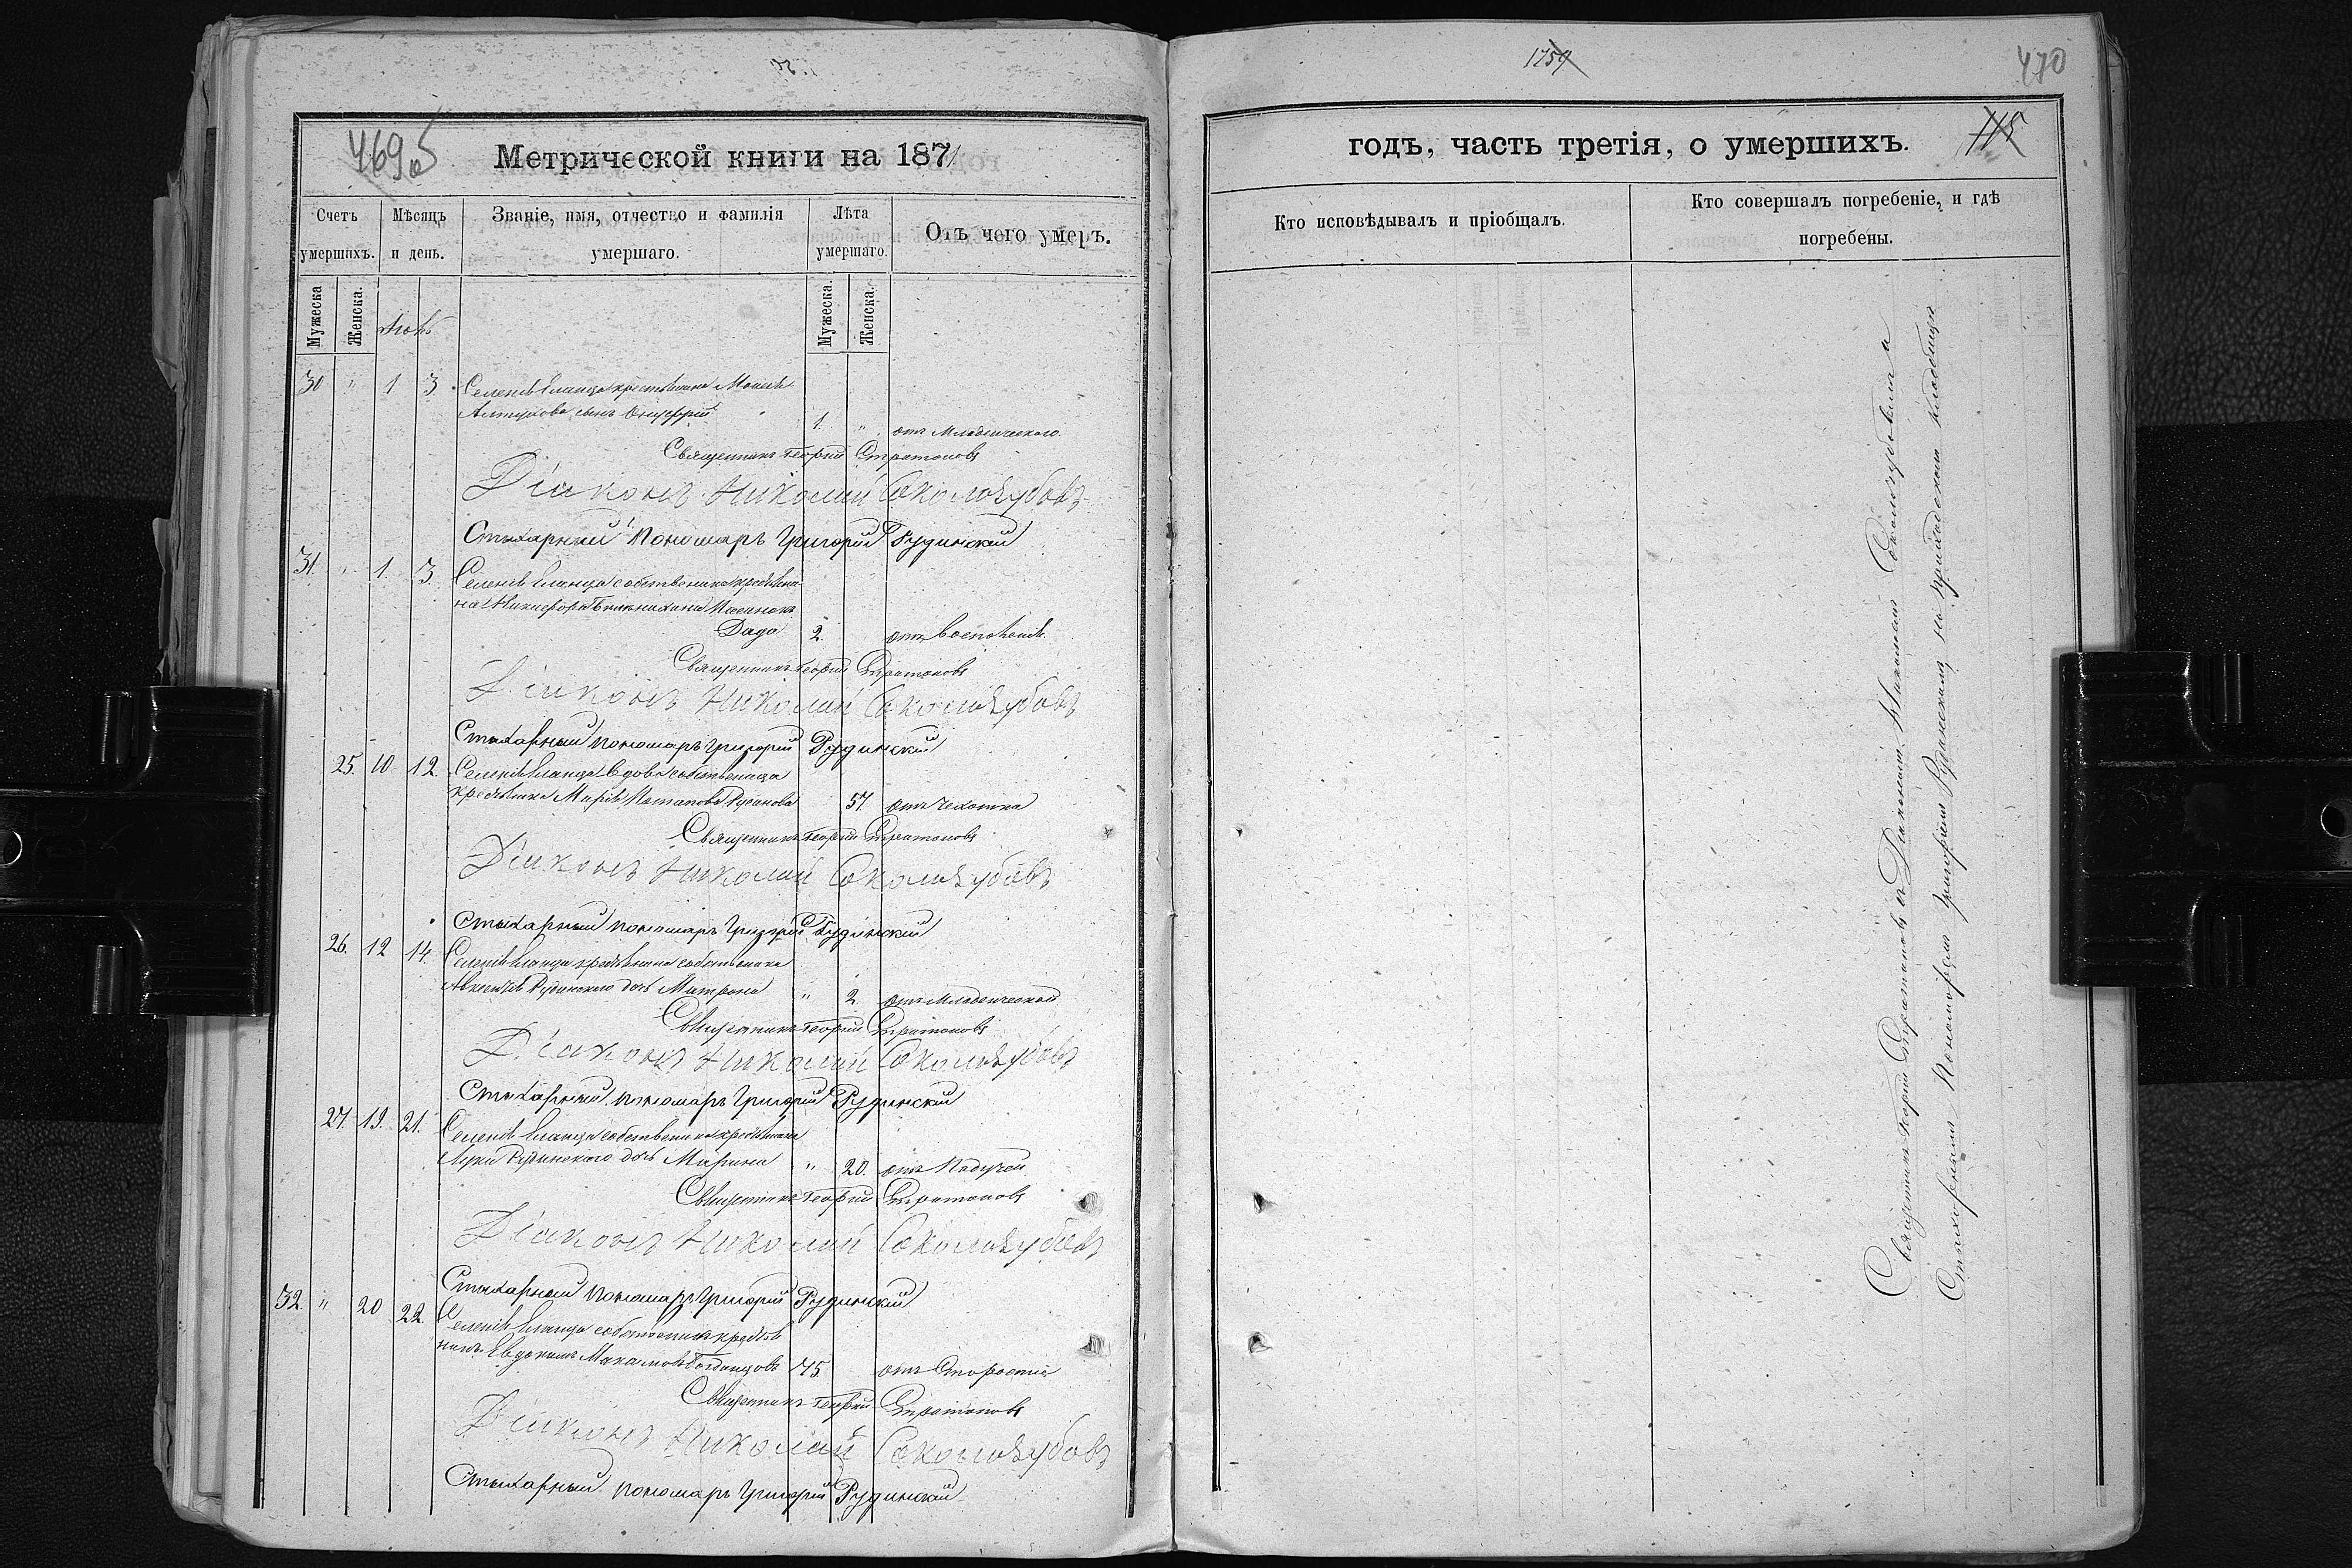 469об
Метрической книги на 1871
Счетъ умершихъ.
Мѣсяцъ и день.
Званіе, имя, отчество и фамилія умершаго.
Лѣта умершаго.
Отъ чего умеръ.
Мужеска
Женска.
Мужеска.
Женска.
30 " 1 3 Селенія Еланца крестьянина
Алтухова сынъ Онуфрій 1. " отъ Младенческого
Священникъ Георгій Стратоновъ
Діаконъ Николай Соколозубовъ
Стихарный Пономарь Григорій Рудинскій
31. " 1. 3. Селенія Еланца собственника крестьяни-
на Никифора
2. отъ
Священникъ Георгій Стратоновъ
Діаконъ Николай Соколозубовъ
Стихарный пономарь Григорій Рудинскій
25. 10 12. Селенія Еланца вдова собственица
крестьянка Марія Потапова Русанова 57. отъ Чехотки
Священникъ Георгій Стратоновъ
Діаконъ Николай Соколозубовъ
Стихарный пономарь Григорій Рудинскій
26. 12 14. Селенія Еланца крестьянина собственика
Авксентія Рудинского дочь Матрона " 2. отъ Младенческой
Священникъ Георгій Стратоновъ
Діаконъ Николай Соколозубовъ
Стихарный пономарь Григорій Рудинскій
27. 19. 21. Селенія Еланца собственика крестьянина
Луки Рудинского дочь Марина " 20. отъ Падучей
Священникъ Георгій Стратоновъ
Діаконъ Николай Соколозубовъ
Стихарный пономарь Григорій Рудинскій
32. " 20 22. Селенія Еланца собственикъ крестья
нинъ Евдокимъ 75 отъ Старости
Священникъ Георгій Стратоновъ
Діаконъ Николай Соколозубовъ
Стихарный пономарь Григорій Рудинскій
1259
470
годъ, часть третія, о умершихъ.
115
Кто исповѣдывалъ и пріобщалъ.
Кто совершалъ погребеніе, и гдѣ
погребены.
Священникъ Георгій Стратоновъ съ Діакономъ Николаемъ Соколозубовымъ и
Стихарнымъ Пономаремъ Григоріемъ Рудинскимъ на приходскомъ кладбищѣ